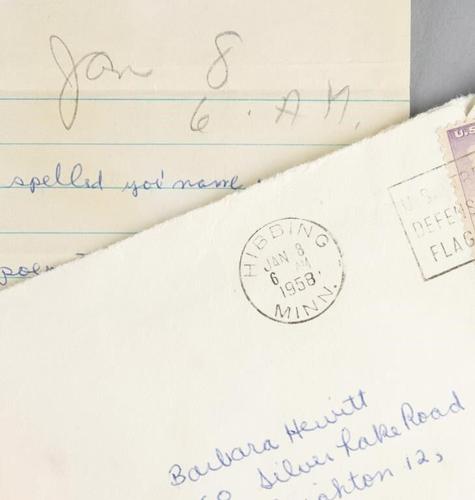 Jan 8
6 A.M.
spelled your name
poem
HIBBING
JAN 8
6 AM
1958
MINN.
U.S.
DEFENS
FLAG
Barbara Hewitt
Silver Lake Road
ighton 12,